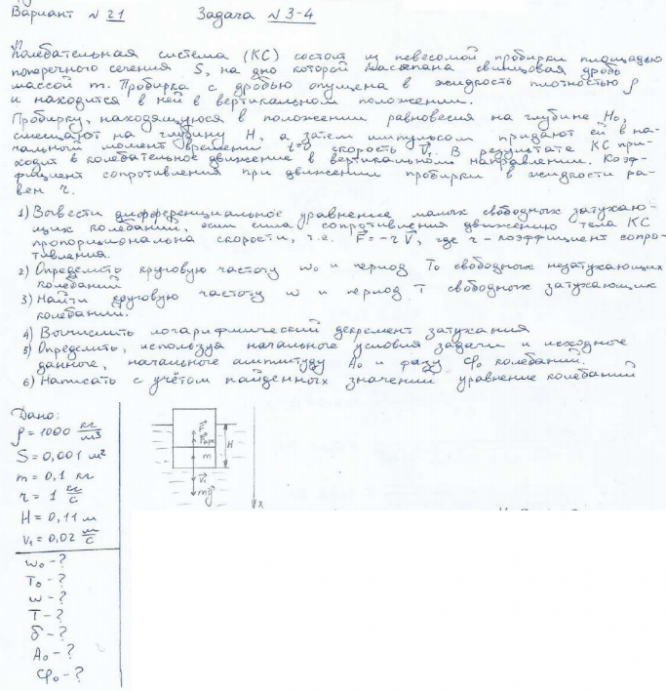 Вариант №21 Задача №3-4
Колебательная система (КС) состоит из невесомой пробирки площадью
поперечного сечения S, на дно которой насыпана свинцовая дробь
массой m. Пробирка с дробью опущена в жидкость плотностью ρ
и находится в ней в вертикальном положении.
Пробирку, находящуюся в положении равновесия на глубине H₀,
смещают на глубину H, а затем импульсом придают ей в на-
чальный момент времени t=0 скорость V⃗₁. В результате КС при-
ходит в колебательное движение в вертикальном направлении. Коэф-
фициент сопротивления при движении пробирки в жидкости ра-
вен r.
1) Вывести дифференциальное уравнение малых свободных затухаю-
щих колебаний, если сила сопротивления движению тела КС
пропорциональна скорости, т.е. F⃗=-rV⃗, где r - коэффициент сопро-
тивления.
2) Определить круговую частоту w₀ и период T₀ свободных незатухающих
колебаний
3) Найти круговую частоту w и период T свободных затухающих
колебаний.
4) Вычислить логарифмический декремент затухания
5) Определить, используя начальные условия задачи и исходные
данные, начальные амплитуду A₀ и фазу φ₀ колебаний.
6) Написать с учётом найденных значений уравнение колебаний
Дано:
ρ = 1000 кг/м³
S = 0,001 м²
m = 0,1 кг
r = 1 кг/с
H = 0,11 м
V₁ = 0,02 м/с
w₀ - ?
T₀ - ?
w - ?
T - ?
δ - ?
A₀ - ?
φ₀ - ?
H
m
V⃗₁
mg⃗
x